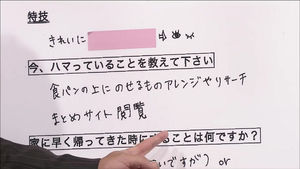 特技
きれいに
今、ハマっていることを教えて下さい
食パンの上にのせるものアレンジやリサーチ
まとめサイト閲覧
家に早く帰ってきた時に
ことは何ですか?
いですが) or